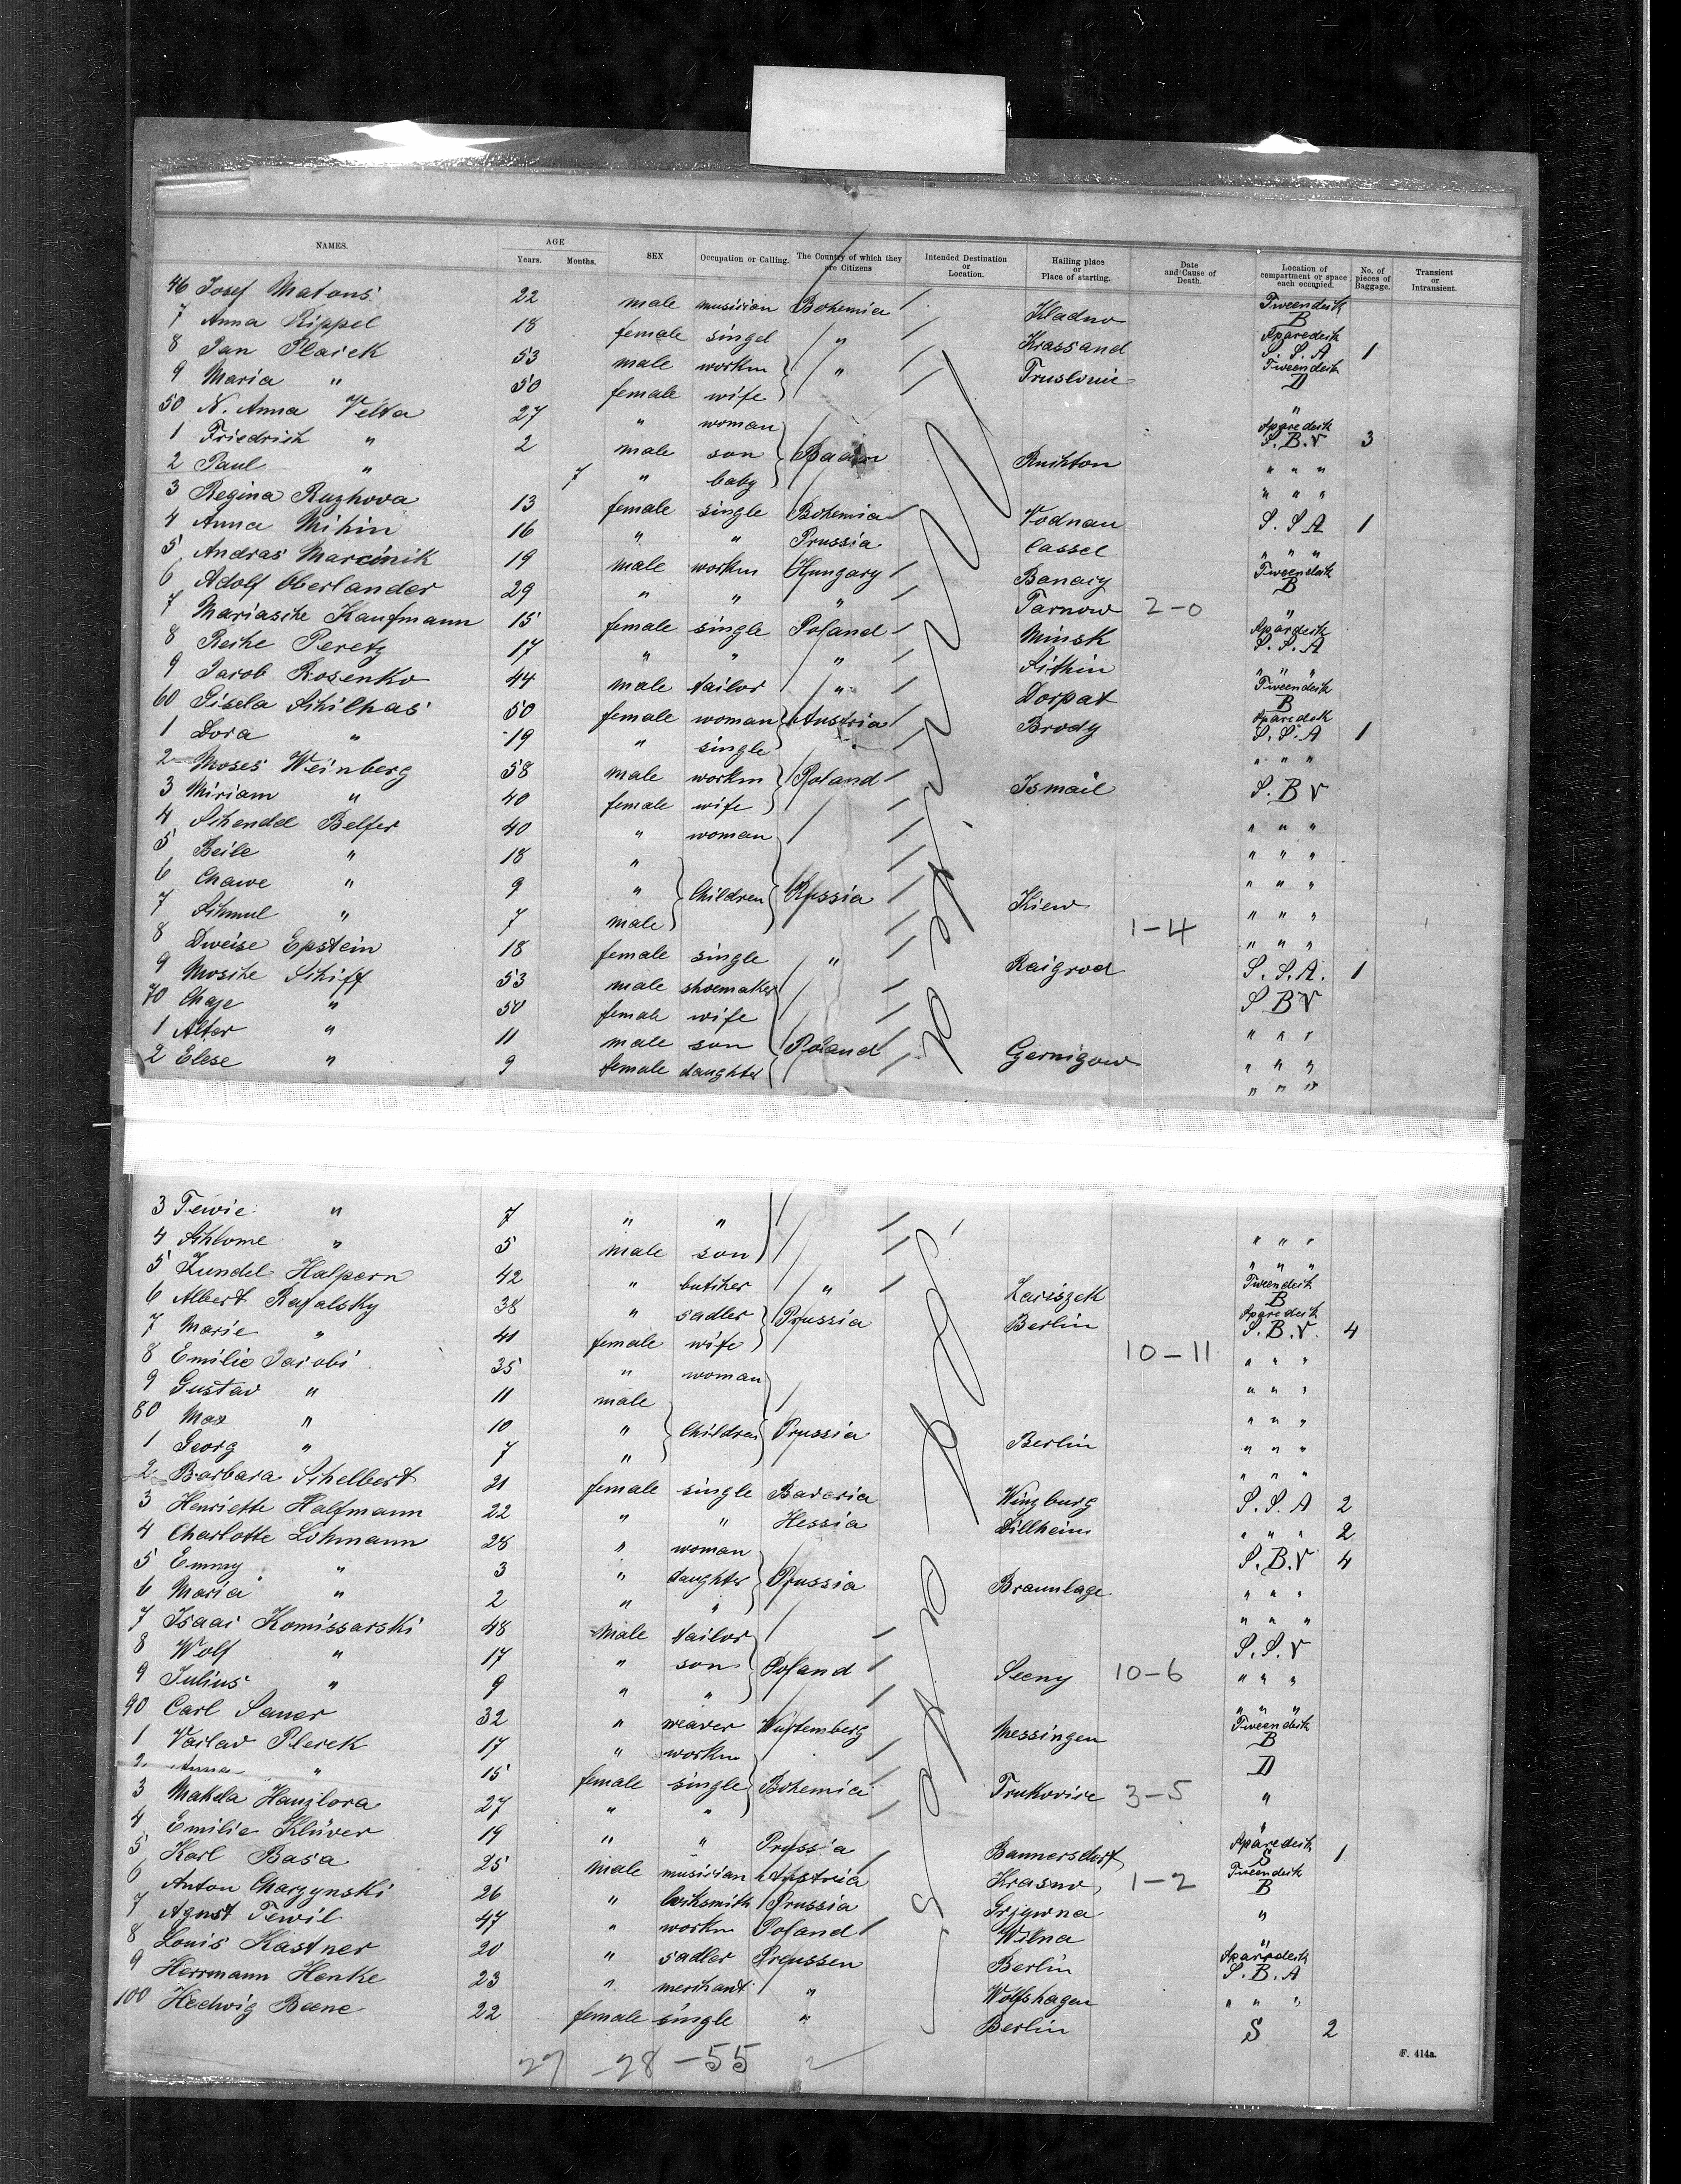 NAMES. AGE Years. Months. SEX Occupation or Calling. The Country of which they are Citizens Intended Destination or Location. Hailing place or Place of starting. Date and Cause of Death. Location of compartment or space each occupied. No. of pieces of Baggage. Transient or Intransient.
46 Josef Matous 22 male musician Bohemia Kladno Tweendeck B
7 Anna Rippel 18 female singel " Krassand Aparedeck S. S. A 1
8 Jan Placek 53 male workm " Truslovic Tweendeck D
9 Maria " 50 female wife "
50 N. Anna Velta 27 " woman Aparedeck S. B. V 3
1 Friedrich " 2 male son Baden Rushton " " "
2 Paul " 7 " baby " " "
3 Regina Ruzhova 13 female single Bohemia Vodnau S. S A 1
4 Anna Mihin 16 " " Prussia Cassel " " "
5 Andras Marcinik 19 male workm Hungary Banacy Tweendeck B
6 Adolf Oberlander 29 " " " Tarnow 2-0 "
7 Mariasche Kaufmann 15 female single Poland Minsk Aparedeck S. S. A
8 Reihe Peretz 17 " " " " " "
9 Jacob Rosenko 44 male tailor " Dorpat Tweendeck B
60 Gisela Schilhas 50 female woman Austria Brody Aparedeck S. S. A 1
1 Dora " 19 " single " " "
2 Moses Weinberg 58 male workm Poland Ismail S. B V
3 Miriam " 40 female wife " " "
4 Schendel Belfer 40 " woman " " "
5 Beile " 18 " " " "
6 Chawe " 9 " Children Russia Kiew " " "
7 Schmul " 7 male 1-4 " " "
8 Dweise Epstein 18 female single " Raigrod S. S. A. 1
9 Mosche Schiff 53 male shoemaker S B V
70 Chaje " 50 female wife " " "
1 Alter " 11 male son Poland Gernigow " " "
2 Elese " 9 female daughter " " "
3 Tewie " 7 " " " " "
4 Schlome " 5 male son " " "
5 Zundel Halpern 42 " butcher " Zariszek Tweendeck B
6 Albert Rafalsky 38 " sadler Prussia Berlin Aparedeck S. B. V. 4
7 Marie " 41 female wife 10-11 " " "
8 Emilie Jacobi 35 " woman " " "
9 Gustav " 11 male " " "
80 Max " 10 " Children Prussia Berlin " " "
1 Georg " 7 " " " "
2 Barbara Schelbert 21 female single Bavaria Winzburg S. S. A 2
3 Henriette Halfmann 22 " " Hessia Dillheim " " " 2
4 Charlotte Lohmann 28 " woman S. B. V 4
5 Emmy " 3 " daughter Prussia Braunlage " " "
6 Maria " 2 " " " " "
7 Isaac Komissarski 48 male tailor S. S. V
8 Wolf " 17 " son Poland Seeny 10-6 " " "
9 Julius " 9 " " " " "
90 Carl Sauer 32 " weaver Wurtemberg Messingen Tweendeck B
1 Vaclav Plecek 17 " workm D
2 Anna " 15 female single Bohemia Trukovice 3-5 "
3 Makda Hanzlora 27 " " "
4 Emilie Klüver 19 " " Prussia Bannersdorf Aparedeck S 1
5 Karl Basa 25 male musician Austria Krasno 1-2 Tweendeck B
6 Anton Charzynski 26 " locksmith Prussia Grzywna "
7 Agust Tewil 47 " workm Poland Wilna "
8 Louis Kastner 20 " sadler Preussen Berlin Aparedeck S. B. A
9 Herrmann Henke 23 " merchant " Wolfshagen " " "
100 Hedwig Beene 22 female single " Berlin S 2
27 -28 -55
F. 414a.